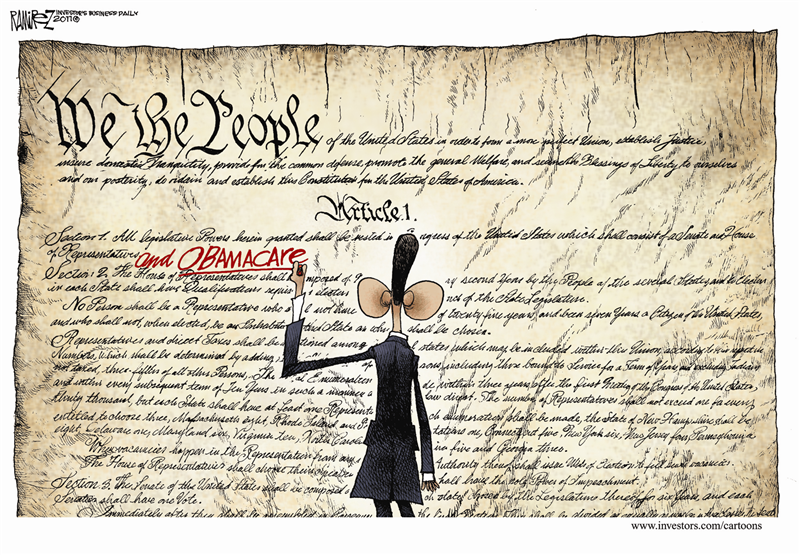 RAMIREZ INVESTOR'S BUSINESS DAILY
2011©
We The People of the United States in order to form a more perfect Union, establish Justice,
insure domestic Tranquility, provide for the common defense, promote the general Welfare, and secure the Blessings of Liberty to ourselves
and our posterity, do ordain and establish this Constitution for the United States of America.
Article 1.
Section 1. All legislative Powers herein granted shall be vested in Congress of the United States which shall consist of a Senate and House
of Representatives and OBAMACARE
Section 2. The House of Representatives shall mposed of y second Year by the People of the several States, and the
in each State shall have Qualifications of the State Legislature.
No Person shall be a Representative who not have of twenty five years, and been seven Years a Citizen of the United States,
and who shall not, when elected, be an State shall be chosen.
Representatives and direct Taxes shall be among states which may be included within this Union, according to
Numbers, which shall be determined by adding, including those bound to Service for a Term of Years, and excluding Indians
not taxed, three-fifths of all other Persons, The within three years after the first Meeting of the Congress of the United States
and within every subsequent term of Ten Years in such a manner law direct. The number of Representatives shall not exceed one for every
thirty thousand, but each State shall have at least one enumeration shall be made, the State of New Hampshire shall be
entitled to choose three, Massachusetts eight, Rhode Island, and Connecticut five New York six, New Jersey four, Pennsylvania
eight, Delaware one, Maryland six, Virginia ten, North five and Georgia three.
When vacancies happen in the Representation from any authority shall issue Writs of Election to fill such vacancies.
The House of Representatives shall choose their shall have the sole Power of Impeachment.
Section 3. The Senate of the United States shall be composed by the Legislature thereof for six Years, and each
Senator shall have one Vote.
Immediately after they shall be assembled in
www.investors.com/cartoons